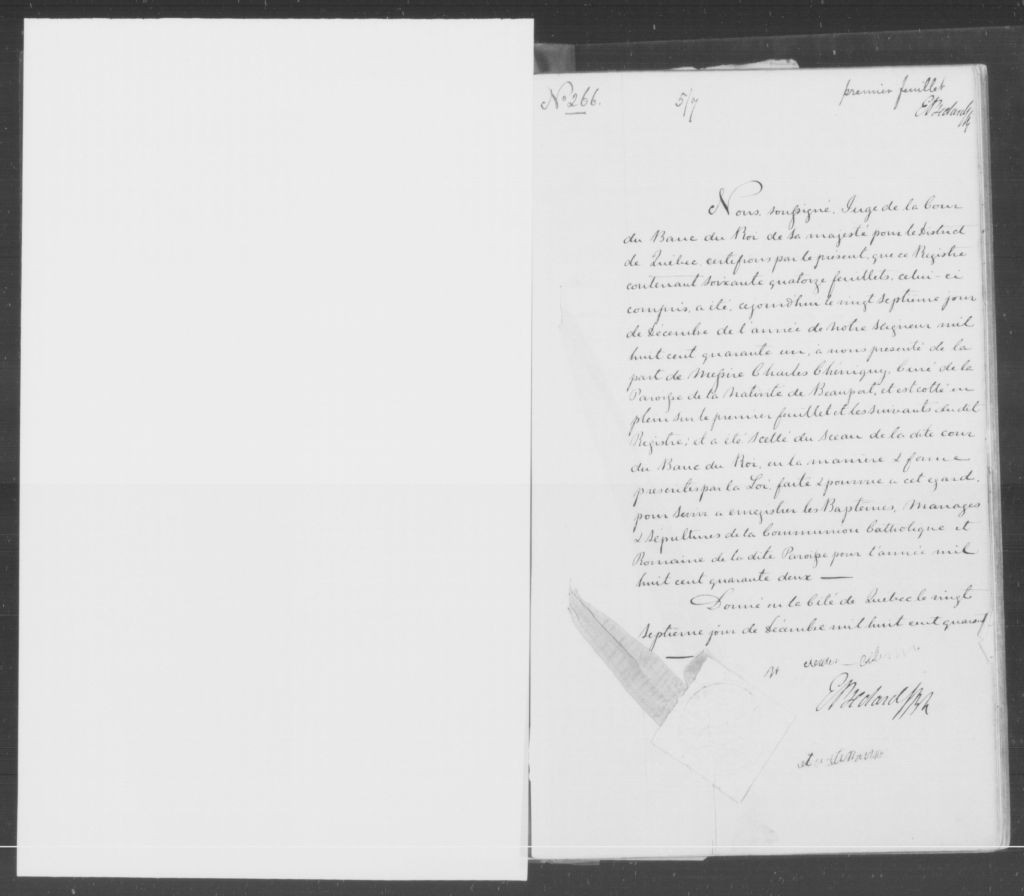 No 266.
5/7
premier feuillet
E Bedard
Nous, soussigné, Juge de la Cour
du Banc du Roi de sa majesté pour le District
de Québec, certifions par le présent, que ce Registre
contenant soixante quatorze feuillets, celui-ci
compris, a été, aujourd'hui le vingt septieme jour
de Décembre de l'année de notre Seigneur mil
huit cent quarante un, à nous presenté de la
part de Messire Charles Chinigny, Curé de la
Paroisse de la Nativité de Beauport, et est cotté en
plein sur le premier feuillet et les suivants du dit
Registre; et a été scellé du Sceau de la dite cour
du Banc du Roi, en la manière & forme
presentes par la Loi, faite & pourvue a cet egard,
pour servir a enregistrer les Baptemes, Mariages
& Sépultures de la Communion Catholique et
Romaine de la dite Paroisse pour l'année mil
huit cent quarante deux —
Donné en la Cité de Quebec le vingt
septieme jour de Décembre mil huit cent quarante
E Bedard
et